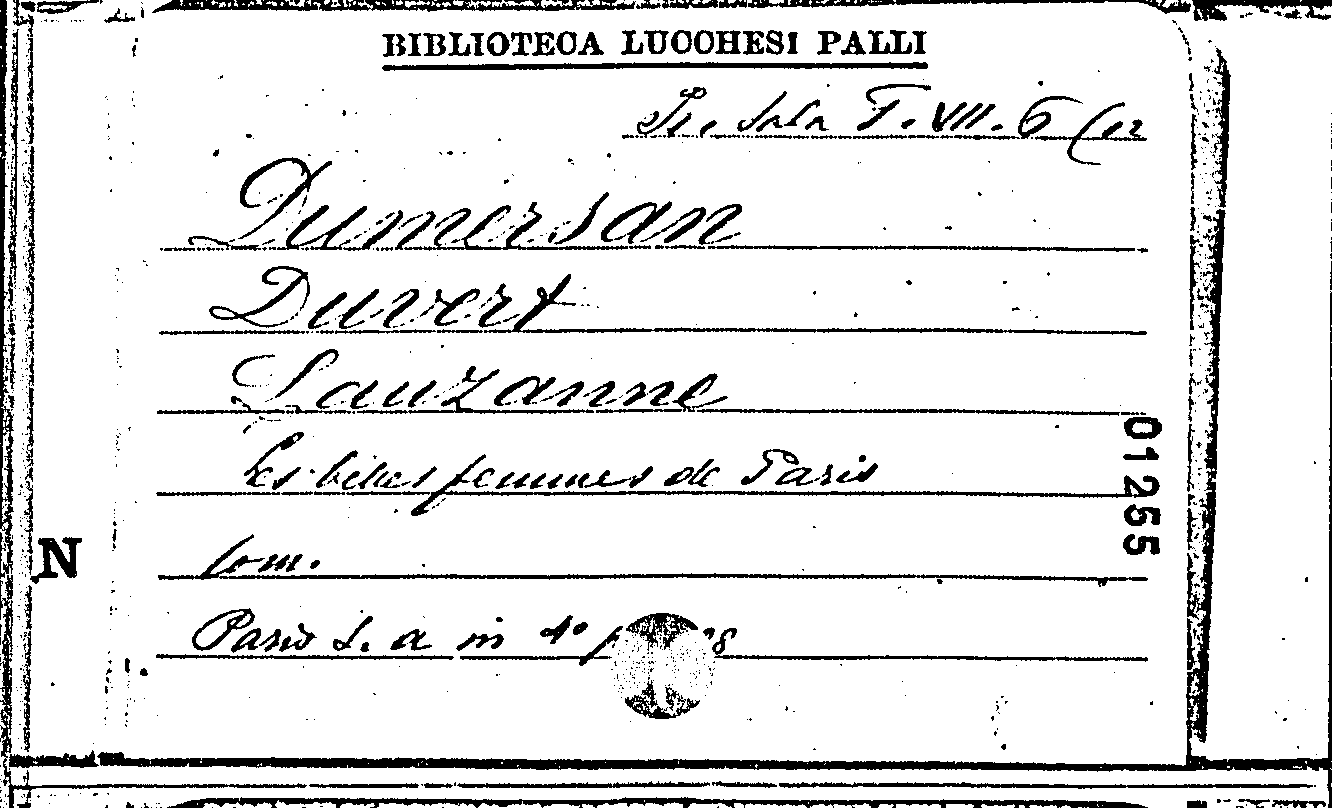 BIBLIOTECA LUCCHESI PALLI
Sr. Sala T. VII. 6 (12
Dumersan
Duvert
Lauzanne
Les belles femmes de Paris
01255
N
Com.
Paris S. a in 4º p 8